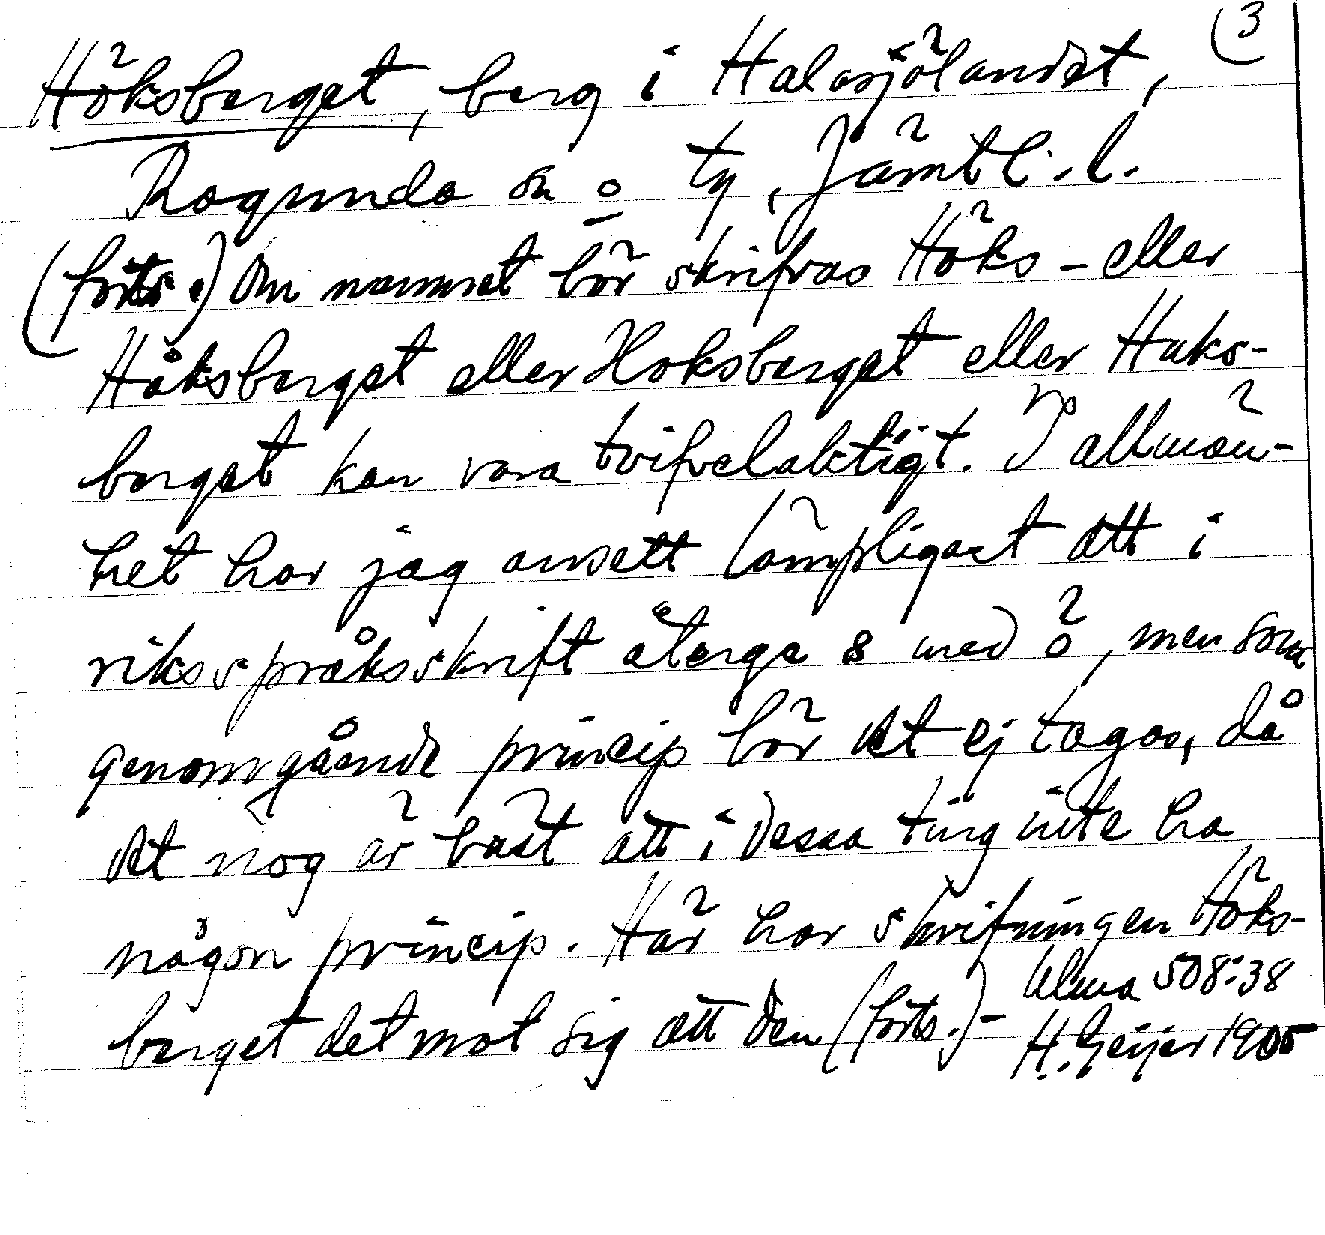 (3
Höksberget, berg i Halasjölandet,
Ragunda sn o ty, Jämtl. l.
(forts.) Om namnet bör skrifvas Höks- eller
Håksberget eller Hoksberget eller Haks-
berget kan vara tvifvelaktigt. I allmän-
het har jag ansett lämpligast att i
riksspråksskrift återge 8 med ö, men som
genomgående princip bör det ej tagas, då
det nog är bäst att i dessa ting inte ha
någon princip. Här har skrifningen Höks-
berget det mot sig att den (forts.)-
Alma 508:38
H. Geijer 1905